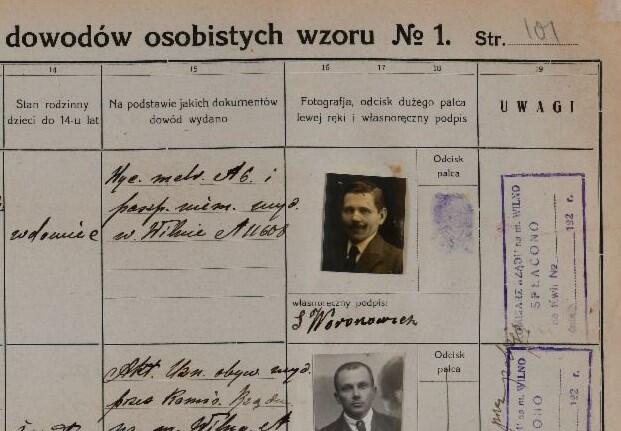 dowodów osobistych wzoru № 1. Str. 101
14 15 16 17 18 19
Stan rodzinny
dzieci do 14-u lat
Na podstawie jakich dokumentów
dowód wydano
Fotografja, odcisk dużego palca
lewej ręki i własnoręczny podpis
UWAGI
wdowiec
Wyc. metr. i
paszp. niem. wyd.
w Wilnie A 11608
Odcisk
palca
własnoręczny podpis:
S Woronowicz
na m. WILNO
SPŁACONO
na kwit №
192 r.
Akt. Uzn. obyw. wyd.
przez Komis. Rządu
na m. Wilno
Odcisk
palca
na m. WILNO
ONO
192 r.